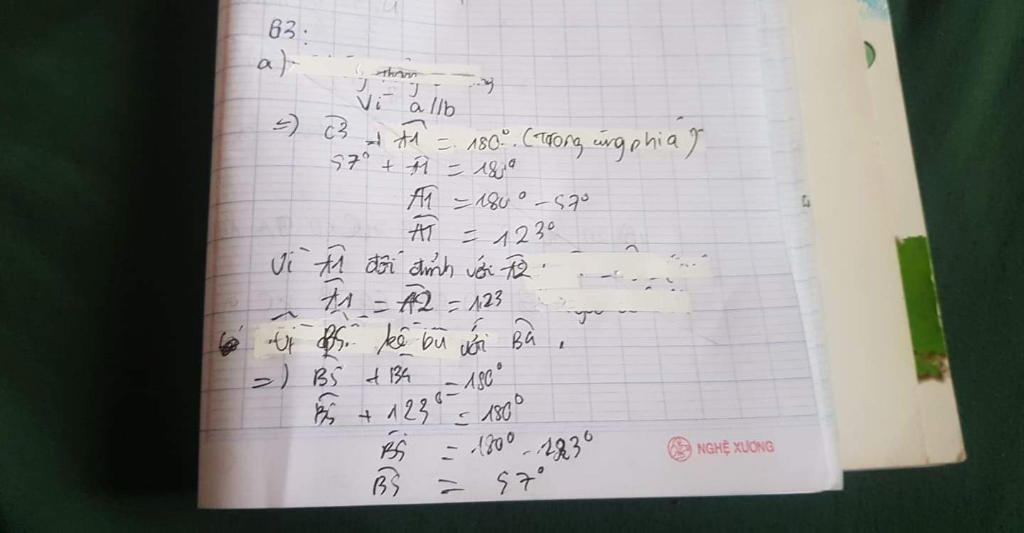 B3:
a)
Vì a//b
=) C3 + A1 = 180° (Trong cùng phía)
57° + A1 = 180°
A1 = 180° - 57°
A1 = 123°
Vì A1 đối đỉnh với A2
A1 = A2 = 123
Vì B5 kề bù với B4.
=) B5 + B4 = 180°
B5 + 123° = 180°
B5 = 180° - 123°
B5 = 57°
NGHỆ XƯƠNG